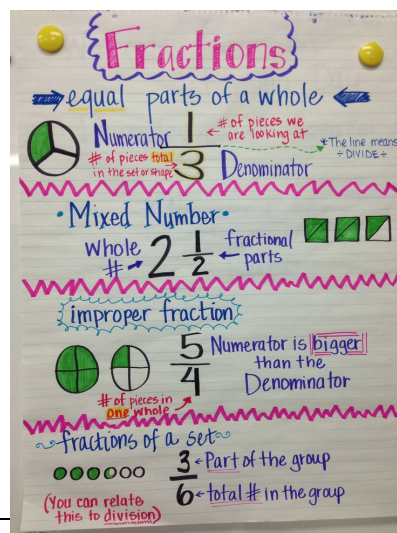 Fractions
equal parts of a whole
Numerator 1 # of pieces we
are looking at
*The line means
÷ DIVIDE ÷
# of pieces total
in the set or shape
3 Denominator
• Mixed Number •
Whole
#
2 1/2
fractional
parts
improper fraction
5/4
Numerator is bigger
than the
Denominator
# of pieces in
one whole
fractions of a set
3 Part of the group
6 total # in the group
(You can relate
this to division)